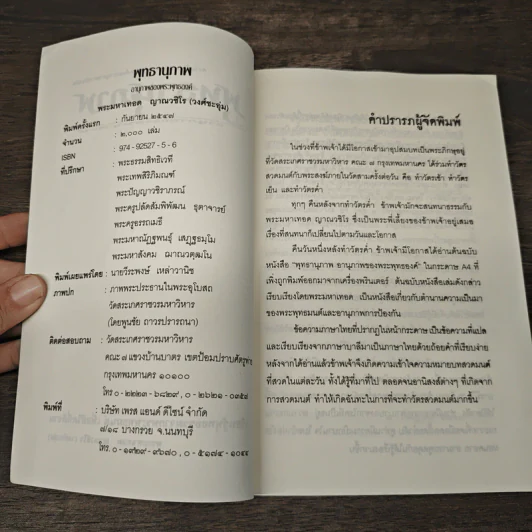 พุทธานุภาพ
อานุภาพของพระพุทธองค์
พระมหาเทอด ญาณวชิโร (วงศ์ชะอุ่ม)
พิมพ์ครั้งแรก : กันยายน ๒๕๔๗
จำนวน : ๒,๐๐๐ เล่ม
ISBN : 974-92527-5-6
ที่ปรึกษา : พระธรรมสิทธิเวที
พระเทพสิริภิมณฑ์
พระปัญญาวชิราภรณ์
พระครูปลัดสัมพิพัฒน ธุตาจารย์
พระครูอรรถเมธี
พระมหาณัฏฐพนธุ์ เสฏฐธมฺโม
พระมหาสังคม ฌาณวฑฺฒโน
พิมพ์เผยแพร่โดย : นายวีระพงษ์ เหล่าวานิช
ภาพปก : ภาพพระประธานในพระอุโบสถ
วัดสระเกศราชวรมหาวิหาร
(โดยพูนชัย ถาวรปรารถนา)
ติดต่อสอบถาม : วัดสระเกศราชวรมหาวิหาร
คณะ ๗ แขวงบ้านบาตร เขตป้อมปราบศัตรูพ่าย
กรุงเทพมหานคร ๑๐๑๐๐
โทร ๐-๒๒๒๓-๖๘๒๙, ๐-๒๖๒๑-๐๙๕๘
พิมพ์ที่ : บริษัท เพรส แอนด์ ดีไซน์ จำกัด
๗/๑๘ บางกรวย จ.นนทบุรี
โทร. ๐-๑๙๒๙-๙๖๗๐, ๐-๕๑๗๔-๑๐๔๔
คำปรารภผู้จัดพิมพ์
ในช่วงที่ข้าพเจ้าได้มีโอกาสเข้ามาอุปสมบทเป็นพระภิกษุอยู่
ที่วัดสระเกศราชวรมหาวิหาร คณะ ๗ กรุงเทพมหานคร ได้ร่วมทำวัตร
สวดมนต์กับพระสงฆ์ภายในวัดสามครั้งต่อวัน คือ ทำวัตรเช้า ทำวัตร
เย็น และทำวัตรค่ำ
ทุกๆ คืนหลังจากทำวัตรค่ำ ข้าพเจ้ามักจะสนทนาธรรมกับ
พระมหาเทอด ญาณวชิโร ซึ่งเป็นพระพี่เลี้ยงของข้าพเจ้าอยู่เสมอ
เรื่องที่สนทนาก็เปลี่ยนไปตามวันและโอกาส
คืนวันหนึ่งหลังทำวัตรค่ำ ข้าพเจ้ามีโอกาสได้อ่านต้นฉบับ
หนังสือ "พุทธานุภาพ อานุภาพของพระพุทธองค์" ในกระดาษ A4 ที่
เพิ่งถูกพิมพ์ออกมาจากเครื่องพรินเตอร์ ต้นฉบับหนังสือเล่มดังกล่าว
เรียบเรียงโดยพระมหาเทอด เป็นหนังสือเกี่ยวกับตำนานความเป็นมา
ของพระพุทธมนต์และอานุภาพการป้องกัน
ข้อความภาษาไทยที่ปรากฏในหน้ากระดาษเป็นข้อความที่แปล
และเรียบเรียงจากภาษาบาลีมาเป็นภาษาไทยด้วยถ้อยคำที่เรียบง่าย
หลังจากได้อ่านแล้วข้าพเจ้าจึงเกิดความเข้าใจความหมายบทสวดมนต์
ที่สวดในแต่ละวัน ทั้งได้รู้ที่มาที่ไป ตลอดจนอานิสงส์ต่างๆ ที่เกิดจาก
การสวดมนต์ ทำให้เกิดฉันทะในการที่จะทำวัตรสวดมนต์มากขึ้น